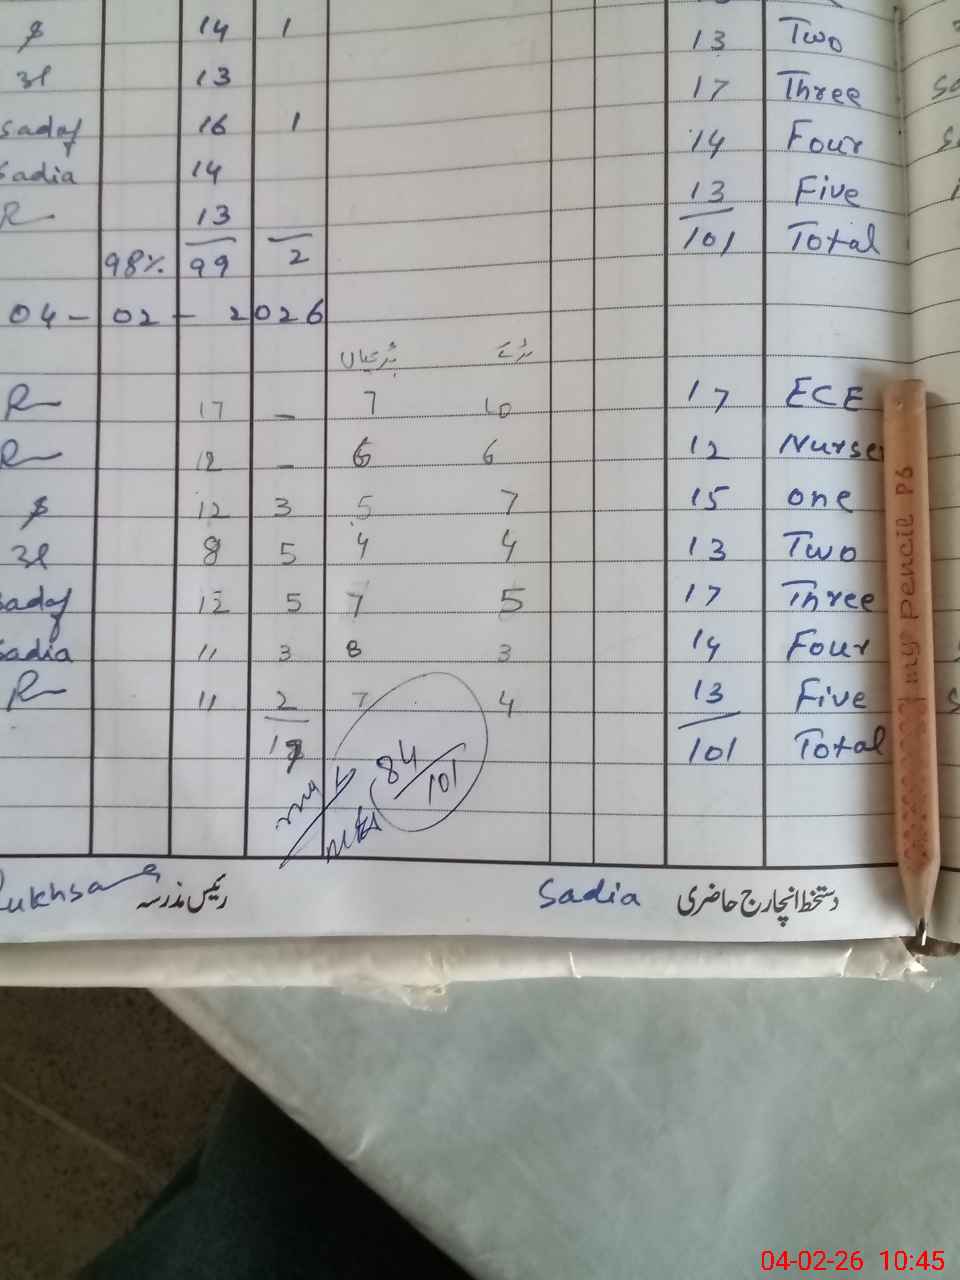 $ 14 1 13 Two
3l 13 17 Three
Sadaf 16 1 14 Four
Sadia 14 13 Five
R 13 101 Total
98% 99 2
04 - 02 - 2026
بچیاں بچے
R 17 - 7 10 17 ECE
R 12 - 6 6 12 Nurse
$ 12 3 5 7 15 one
3l 8 5 4 4 13 Two
Sadaf 12 5 7 5 17 Three
Sadia 11 3 8 3 14 Four
R 11 2 7 4 13 Five
84/101 101 Total
my pencil P6
رئیس مدرسہ Sadia دستخط انچارج حاضری
04-02-26 10:45